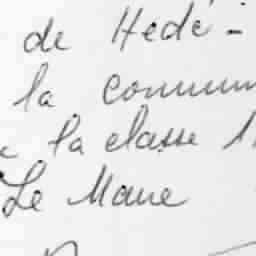 de Hédé -
la commun
la classe 1
Le Maire